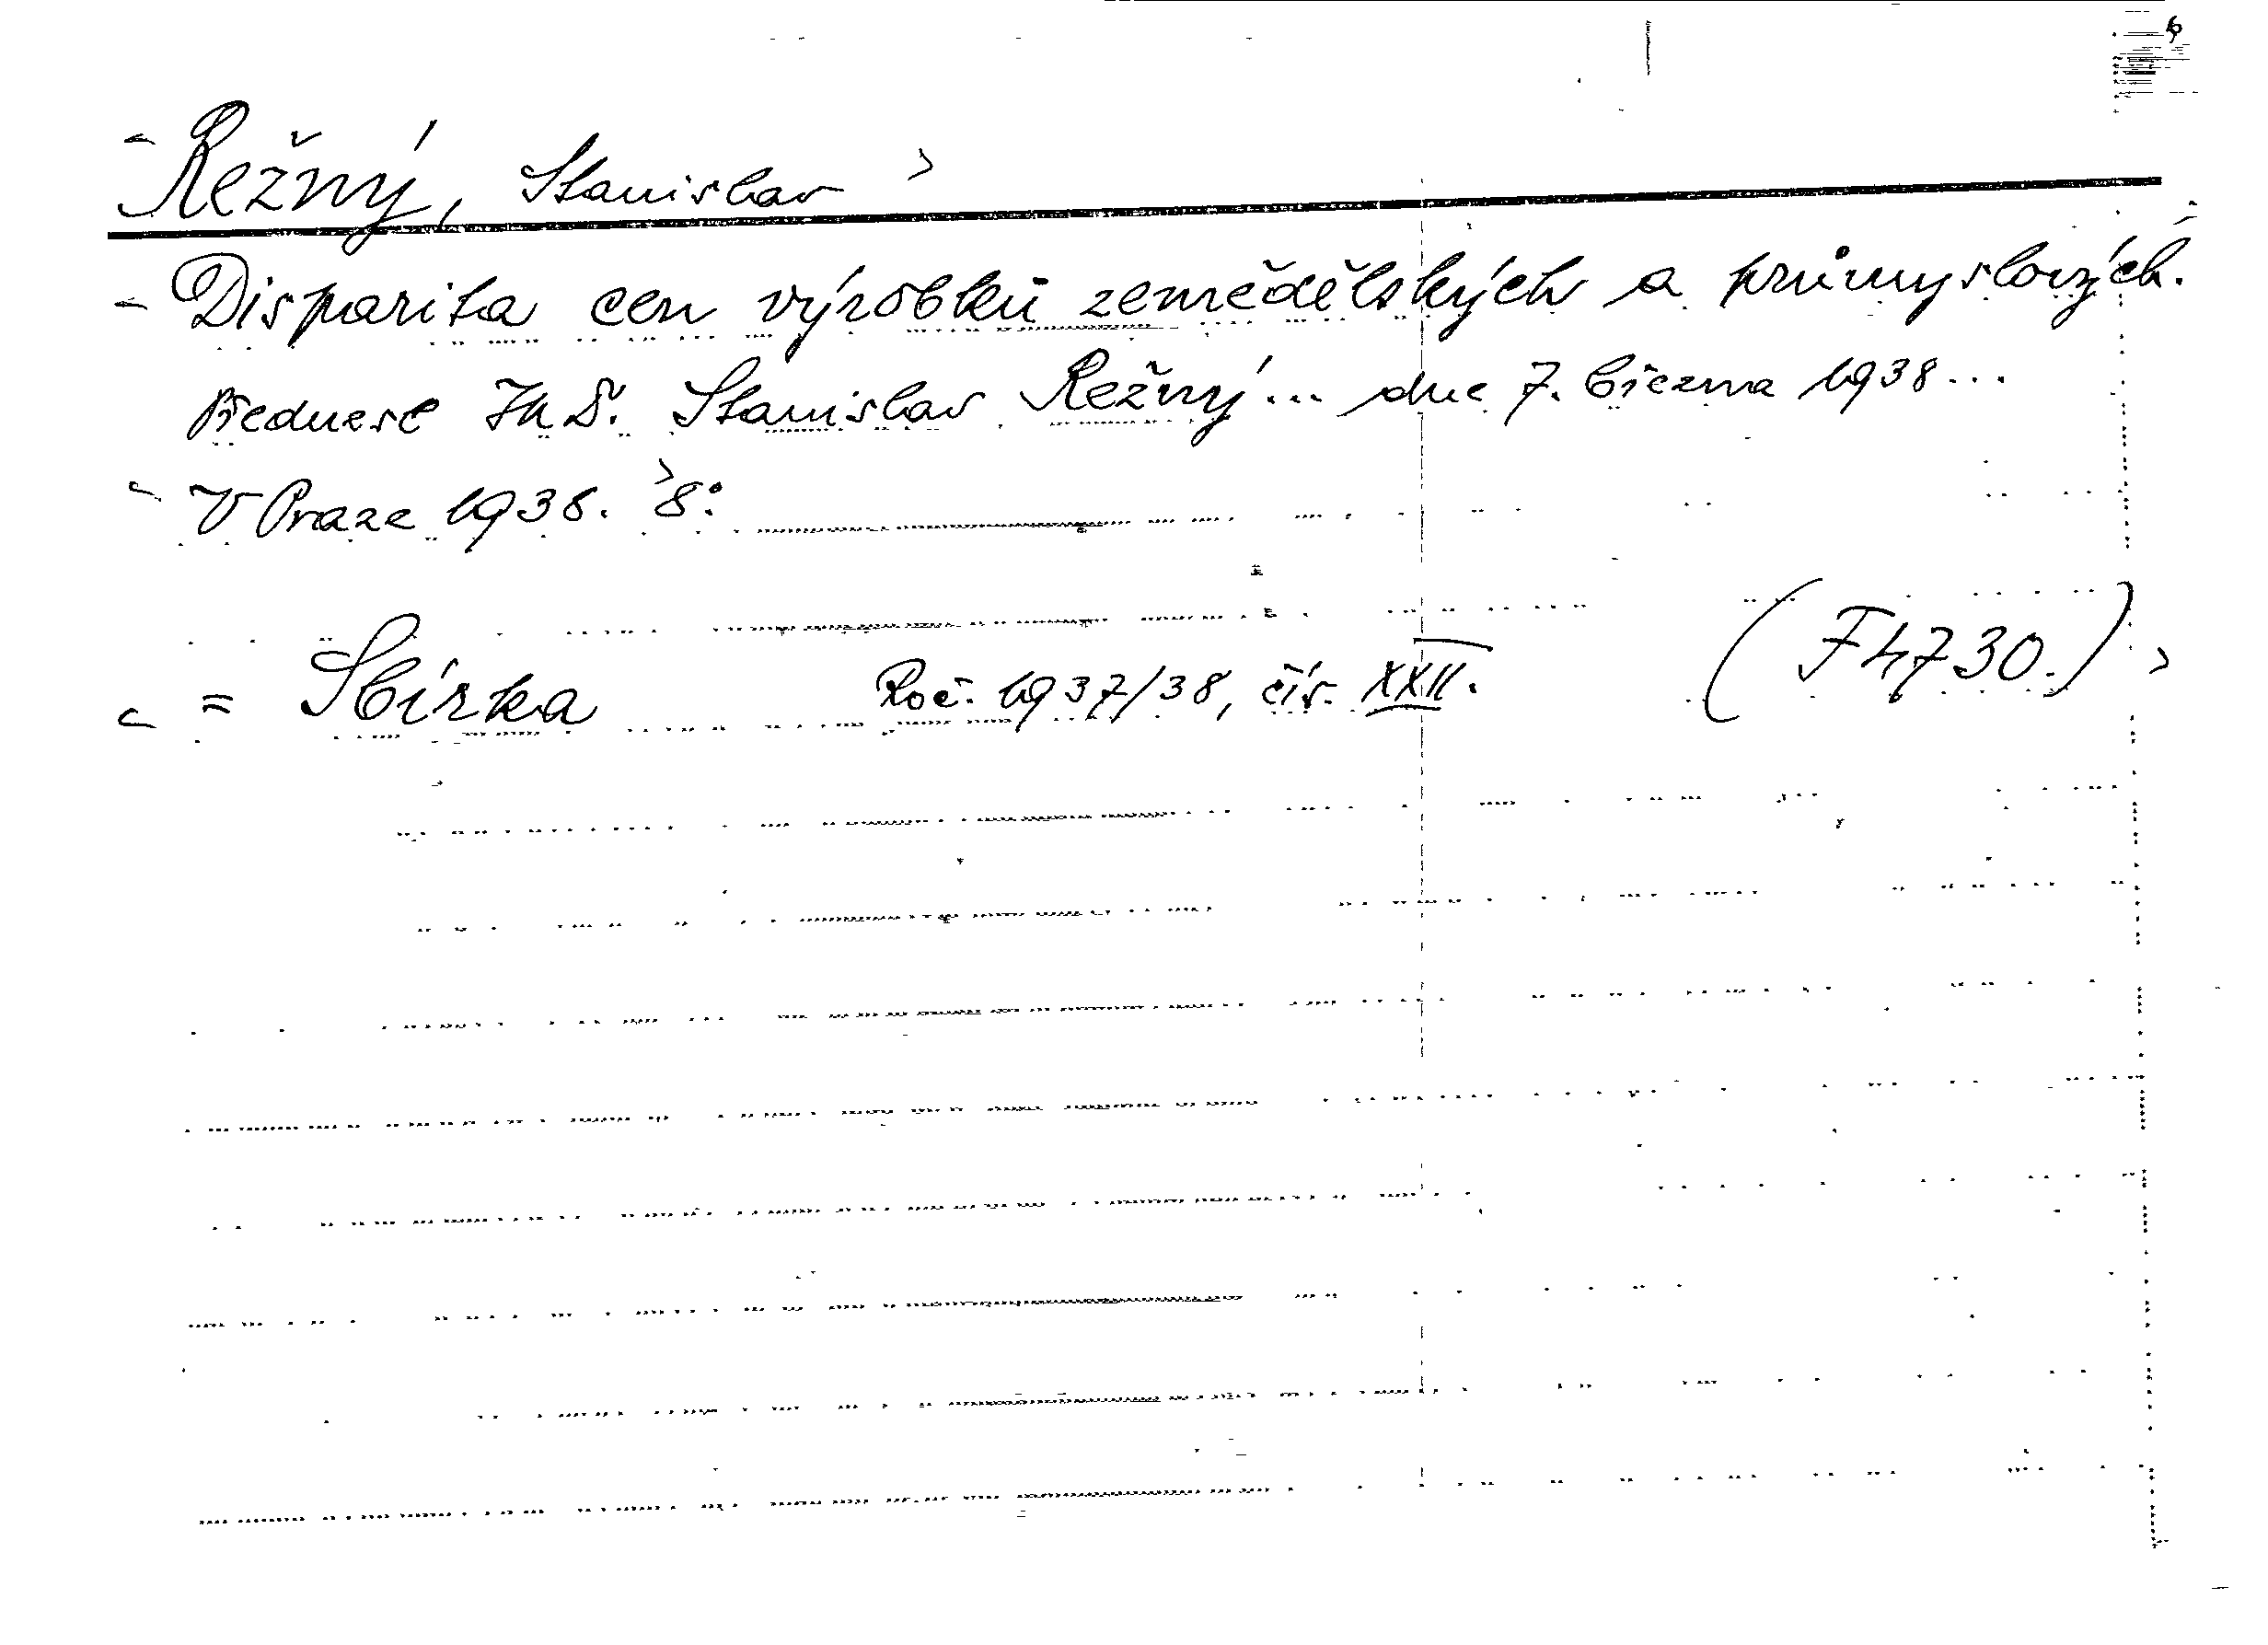 Režný, Stanislav
Disparita cen výrobků zemědělských a průmyslových.
Přednesl Stanislav Režný... dne 7. března 1938...
V Praze 1938. 8°.
= Sbírka Roč. 1937/38, čís. XXII. (F 4730.)